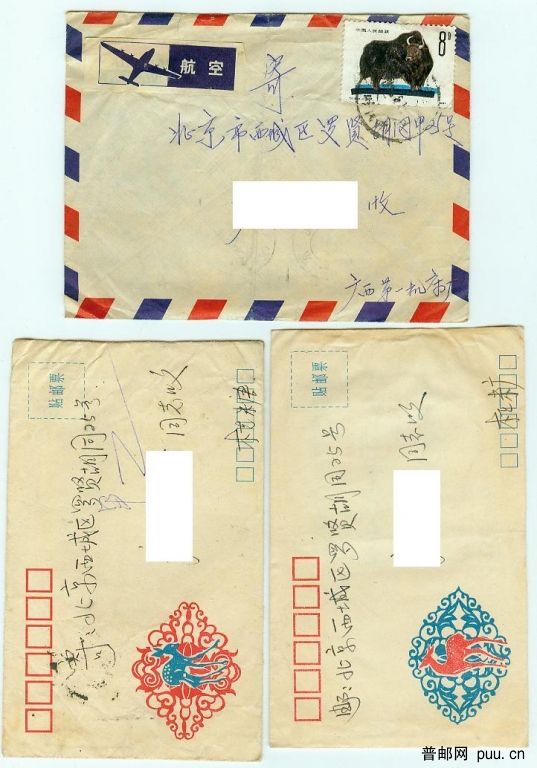 航空
中国人民邮政
8分
寄
北京市西城区罗贤胡同甲25号
收
广西第一机床厂
贴邮票
寄：北京西城区罗贤胡同25号
同志收
贴邮票
邮：北京西城区罗贤胡同25号
同志收
普邮网 puu.cn